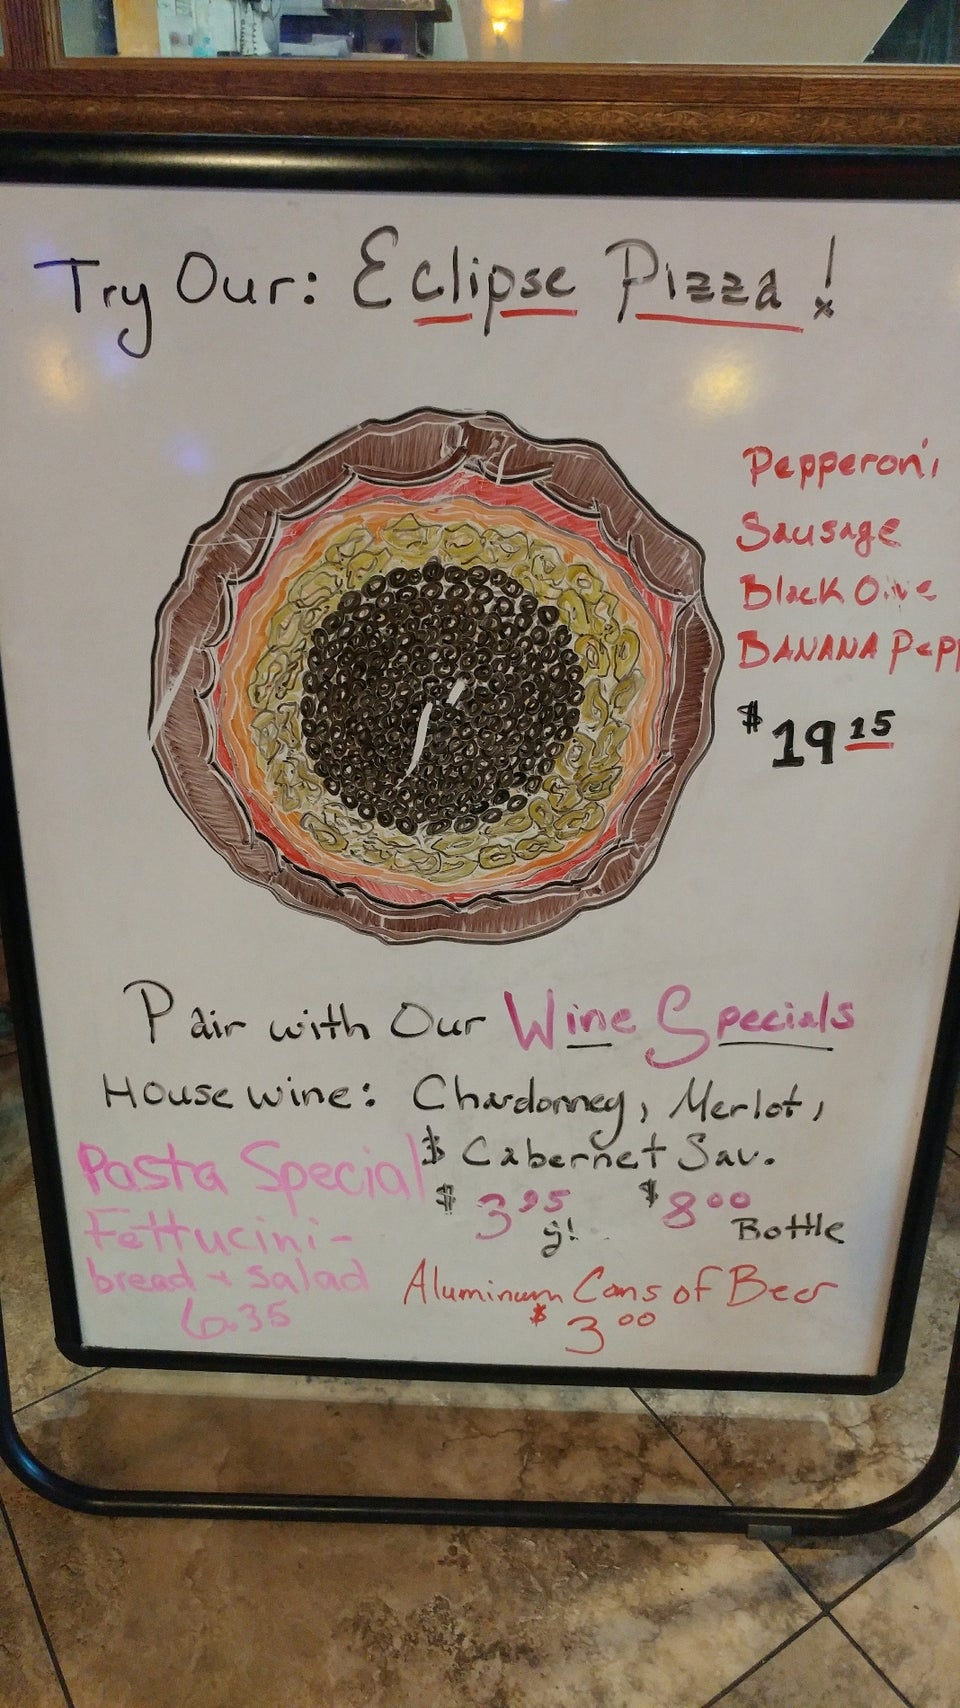 Try Our: Eclipse Pizza!
Pepperoni
Sausage
Black Olive
BANANA Pepp
$19.15
Pair with Our Wine Specials
House wine: Chardonney, Merlot,
$ Cabernet Sav.
$3.95 $8.00
Bottle
Pasta Special
Fettucini -
bread + Salad
6.35
Aluminum Cans of Beer
$3.00